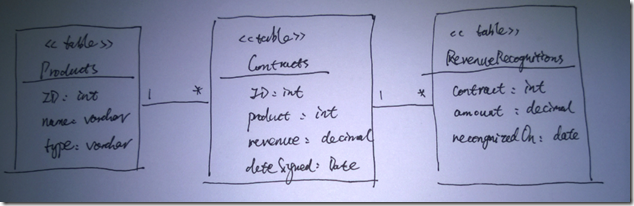 <<table>>
Products
ID: int
name: varchar
type: varchar
1 *
<<table>>
Contracts
ID: int
product: int
revenue: decimal
dateSigned: Date
1 *
<<table>>
RevenueRecognitions
contract: int
amount: decimal
recongnizedOn: date